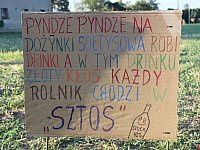 PYNDZE PYNDZE NA
DOŻYNKI SOŁTYSOWA ROBI
DRINKI A W TYM DRINKU
ZŁOTY KŁOS KAŻDY
ROLNIK CHODZI W
„SZTOS”